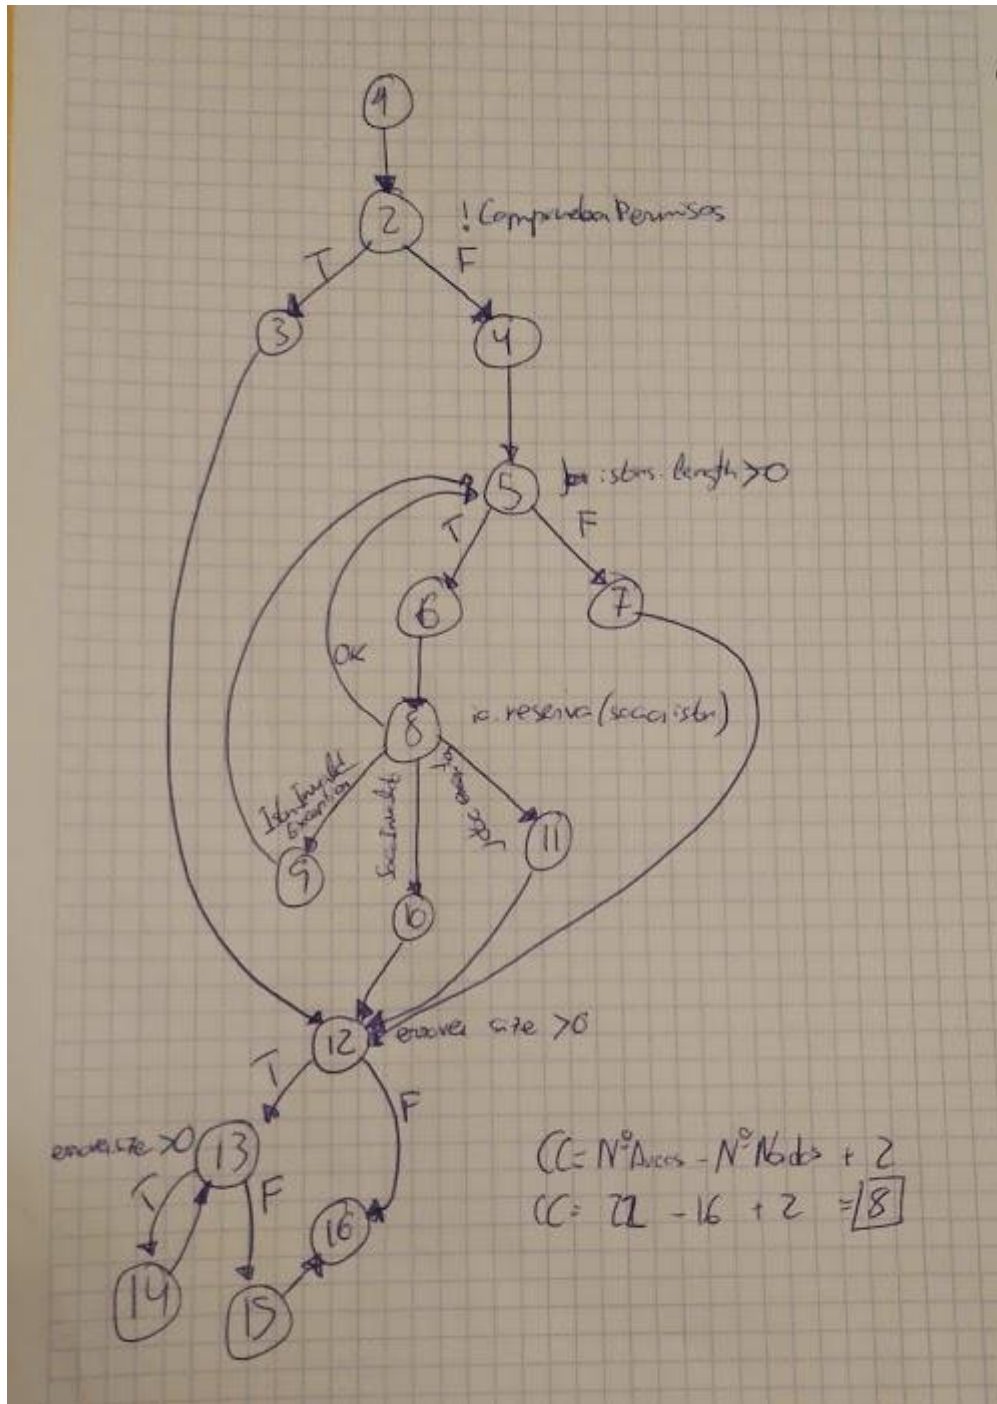 1
2
! Comprueba Permisos
T
F
3
4
5
isbns.length>0
T
F
6
7
OK
8
io.reserva(socio,isbn)
IsbnInvalid
Exception
SocioInvalid
jdbc
9
10
11
12
size >0
T
F
size >0
13
T
F
14
15
16
CC= NºArcos - NºNodos + 2
CC= 22 - 16 + 2 = 8